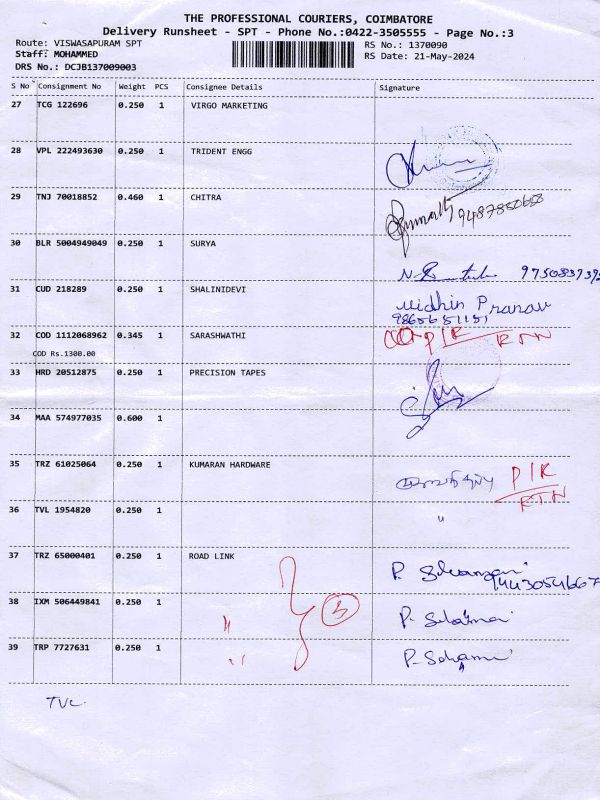 THE PROFESSIONAL COURIERS, COIMBATORE
Delivery Runsheet - SPT - Phone No.:0422-3505555 - Page No.:3
Route: VISWASAPURAM SPT RS No.: 1370090
Staff: MOHAMMED RS Date: 21-May-2024
DRS No.: DCJB137009003
S No Consignment No Weight PCS Consignee Details Signature
27 TCG 122696 0.250 1 VIRGO MARKETING
28 VPL 222493630 0.250 1 TRIDENT ENGG
29 TNJ 70018852 0.460 1 CHITRA 9487850658
30 BLR 5004949049 0.250 1 SURYA
31 CUD 218289 0.250 1 SHALINIDEVI Nidhin Pranav
32 COD 1112068962 0.345 1 SARASHWATHI P/R RTN
COD Rs.1300.00
33 HRD 20512875 0.250 1 PRECISION TAPES
34 MAA 574977035 0.600 1
35 TRZ 61025064 0.250 1 KUMARAN HARDWARE P/R
RTN
36 TVL 1954820 0.250 1 "
37 TRZ 65000401 0.250 1 ROAD LINK
9443054667
38 IXM 506449841 0.250 1 " 3
39 TRP 7727631 0.250 1 "
TVL